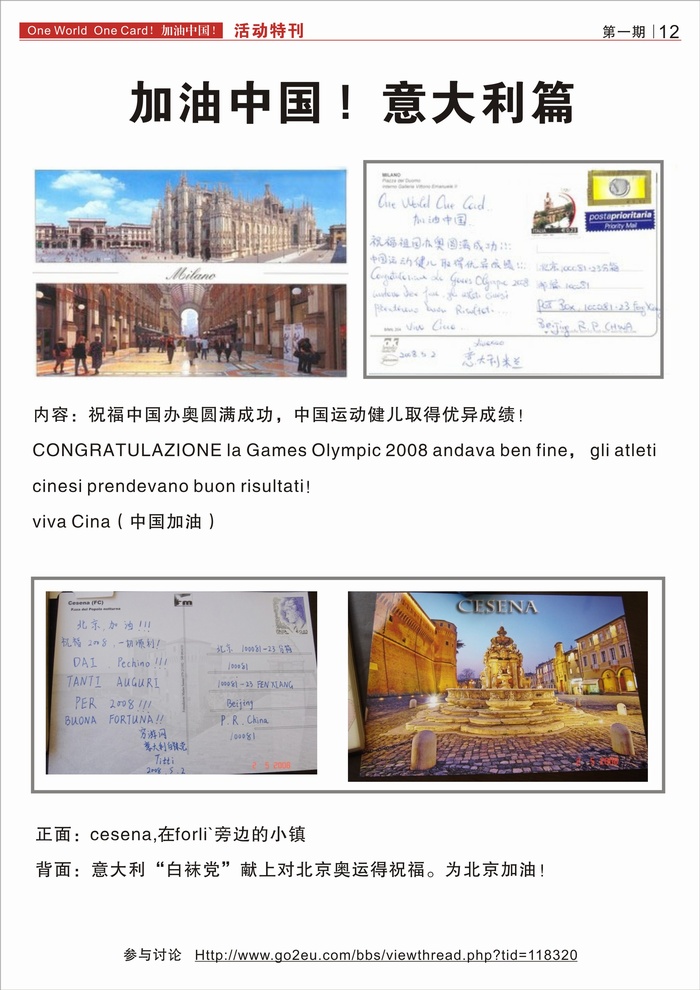 One World One Card! 加油中国! 活动特刊
第一期 | 12
加油中国！意大利篇
Milano
MILANO
Piazza del Duomo
Interno Galleria Vittorio Emanuele II
One World One Card
加油中国
祝福祖国办奥圆满成功!!!
中国运动健儿取得优异成绩!!
viva Cina
2008.5.2
意大利米兰
ITALIA
postaprioritaria
Priority Mail
北京100081-23分箱
邮编100081
P.O. Box. 100081-23 Fen Xiang
Beijing, R.P. CHINA
内容：祝福中国办奥圆满成功，中国运动健儿取得优异成绩！
CONGRATULAZIONE la Games Olympic 2008 andava ben fine， gli atleti
cinesi prendevano buon risultati！
viva Cina（中国加油）
Cesena (FC)
北京,加油!!!
祝福2008,一切顺利!
DAI Pechino!!!
TANTI AUGURI
PER 2008!!!
BUONA FORTUNA!!
穷游网
意大利白袜党
Titti
2008.5.2
北京 100081-23分箱
100081
100081-23 FEN XIANG
Beijing
P.R. China
100081
2 5 2008
CESENA
2 5 2008
正面：cesena,在forli`旁边的小镇
背面：意大利“白袜党”献上对北京奥运得祝福。为北京加油！
参与讨论 Http://www.go2eu.com/bbs/viewthread.php?tid=118320